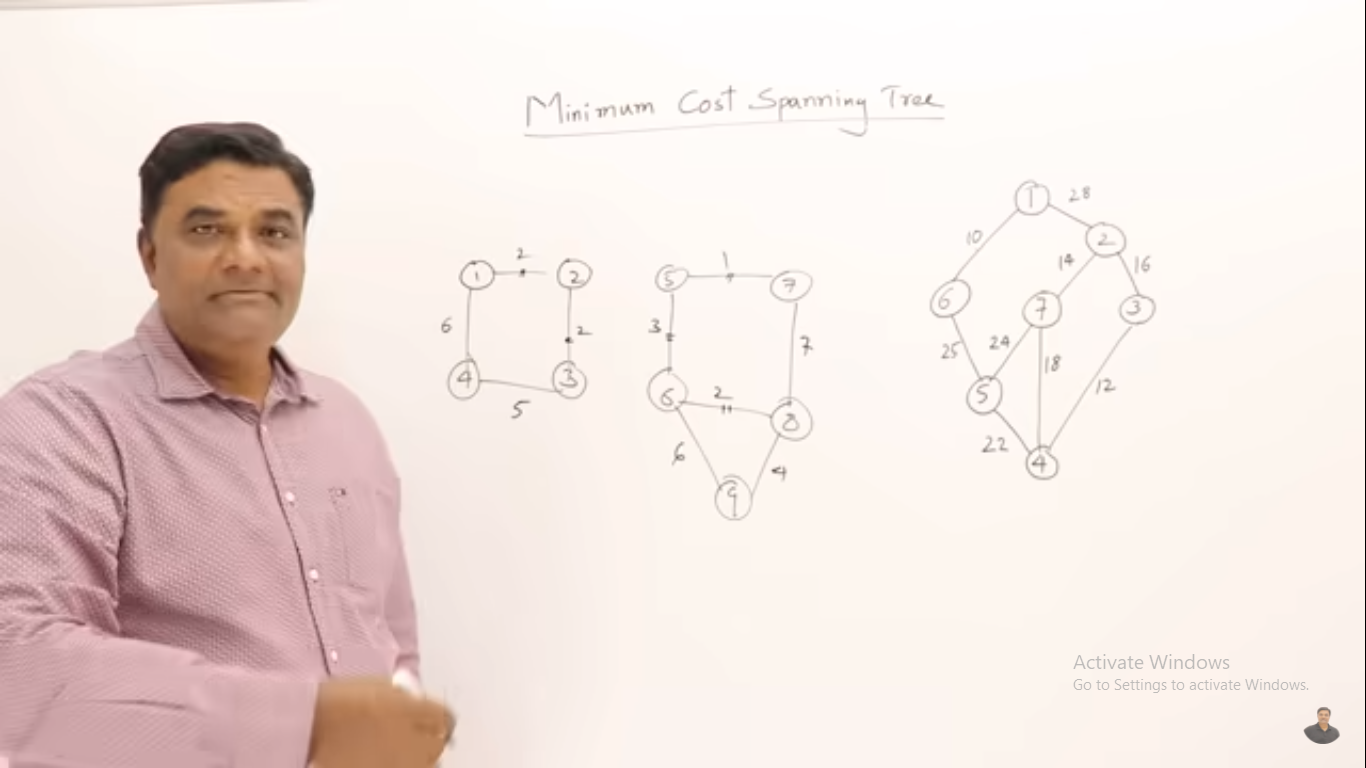 Minimum Cost Spanning Tree
1 2 2
6 2
4 3
5
5 1 7
3 7
6 2 8
6 4
9
1 28
10 2
14 16
6 7 3
25 24 18 12
5
22 4
Activate Windows
Go to Settings to activate Windows.